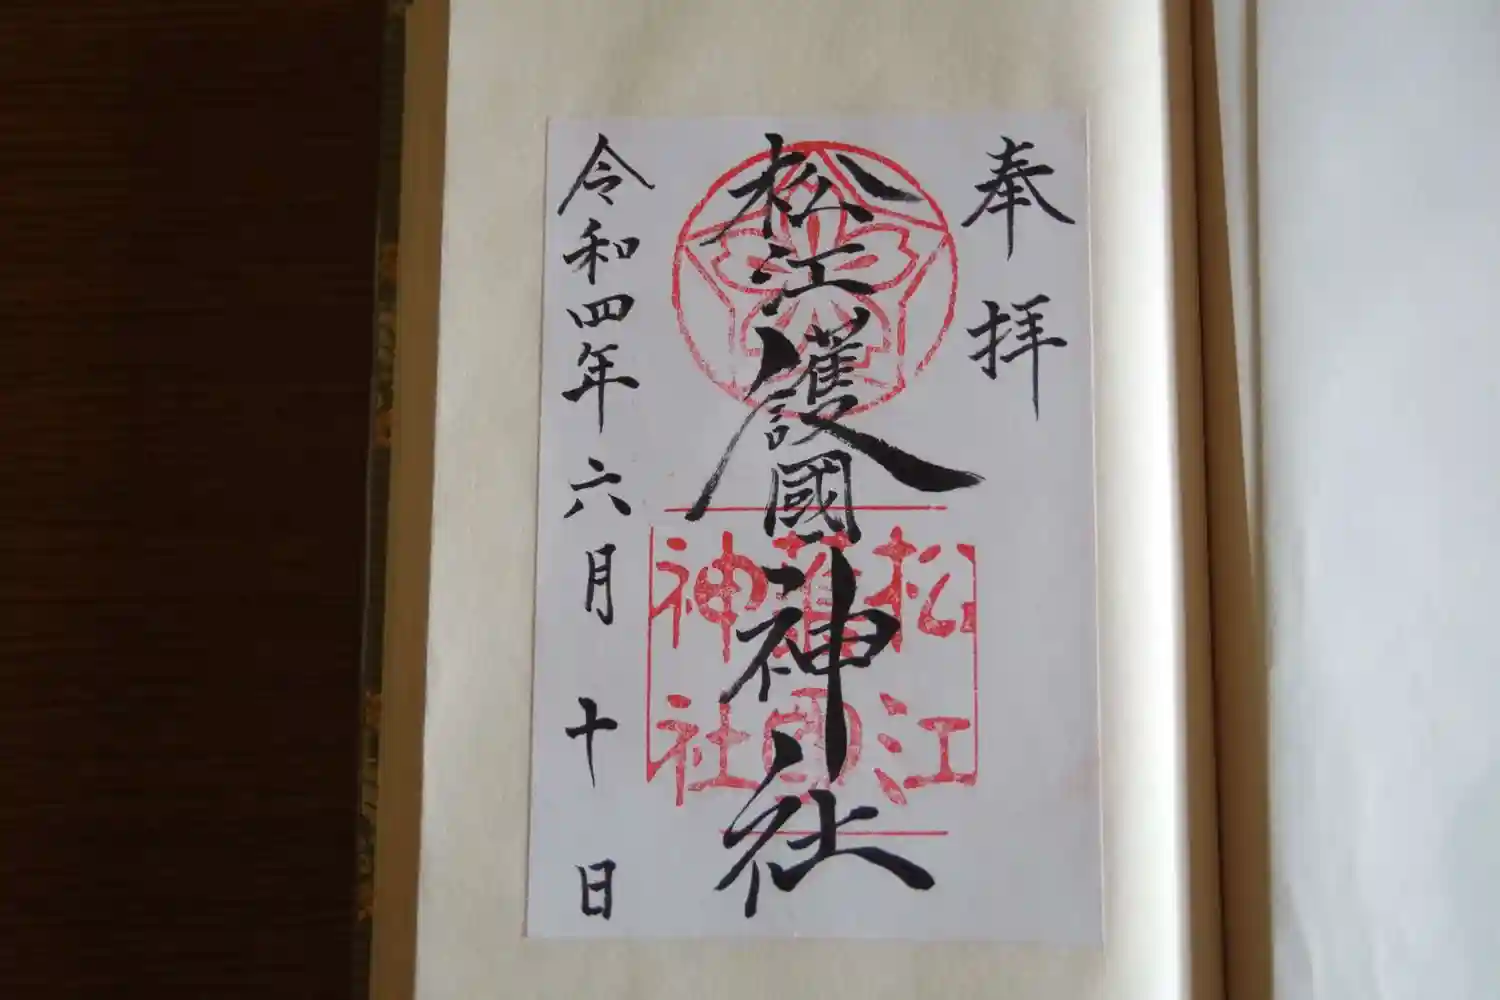 奉拝
松江護國神社
松江
護國
神社
令和四年六月十日